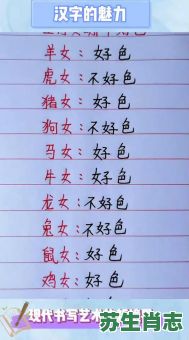 汉字的魅力
羊女：好色
虎女：不好色
猪女：好色
狗女：不好色
马女：好色
牛女：好色
龙女：不好色
兔女：不好色
鼠女：好色
鸡女：好色
现代书写艺术
苏生肖志